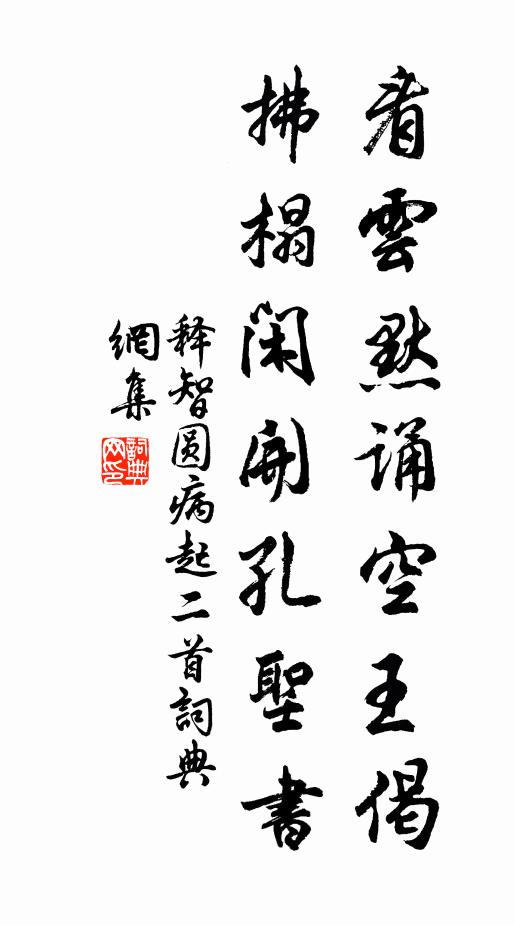 看雲默誦空王偈
拂榻閑開孔聖書
释智圆病起二首詞典
網集
詞典網印